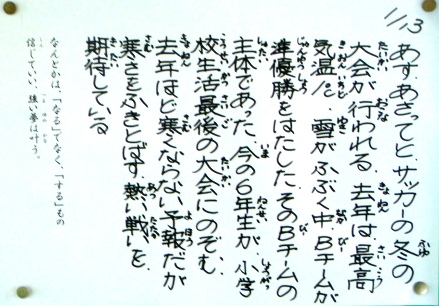 11/13
あす、あさってと、サッカーの冬の
大会が行われる。去年は、最高
気温1°。雪がふぶく中、Bチームが
準優勝をはたした。そのBチームの
主体であった、今の6年生が、小学
校生活最後の大会にのぞむ。
去年ほど寒くならない予報だが
寒さをふきとばす、熱い戦いを
期待している
なんとかは、「なる」でなく、「する」もの
信じていい、強い夢は叶う。